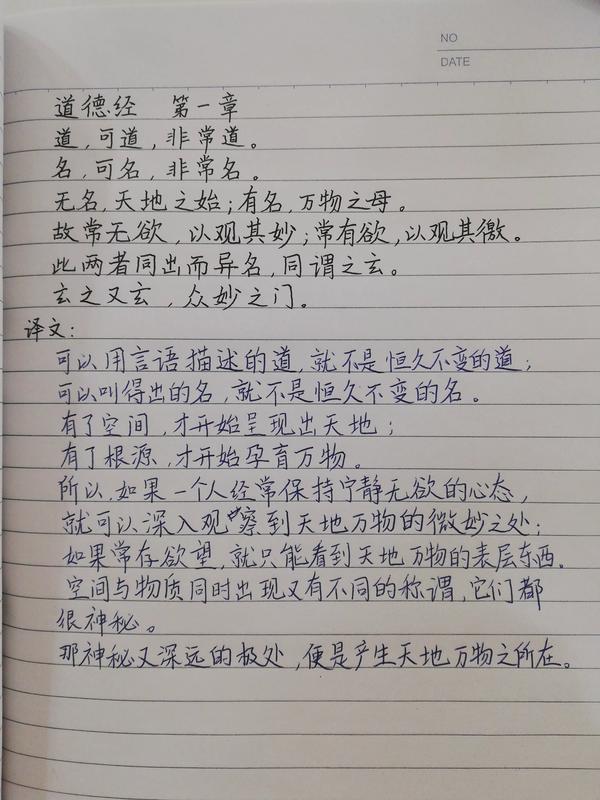 NO
DATE
道德经 第一章
道,可道,非常道。
名,可名,非常名。
无名,天地之始;有名,万物之母。
故常无欲,以观其妙;常有欲,以观其徼。
此两者同出而异名,同谓之玄。
玄之又玄,众妙之门。
译文:
可以用言语描述的道,就不是恒久不变的道;
可以叫得出的名,就不是恒久不变的名。
有了空间,才开始呈现出天地;
有了根源,才开始孕育万物。
所以,如果一个人经常保持宁静无欲的心态,
就可以深入观察到天地万物的微妙之处;
如果常存欲望,就只能看到天地万物的表层东西.
空间与物质同时出现又有不同的称谓,它们都
很神秘。
那神秘又深远的极处,便是产生天地万物之所在。